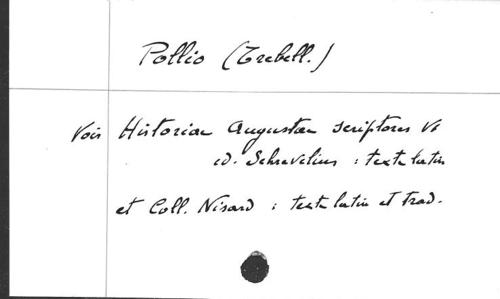 Pollio (Trebell.)
Voir Historiae Augustae scriptores VI
ed. Schrevelius : texte latin
et Coll. Nisard : texte latin et trad.